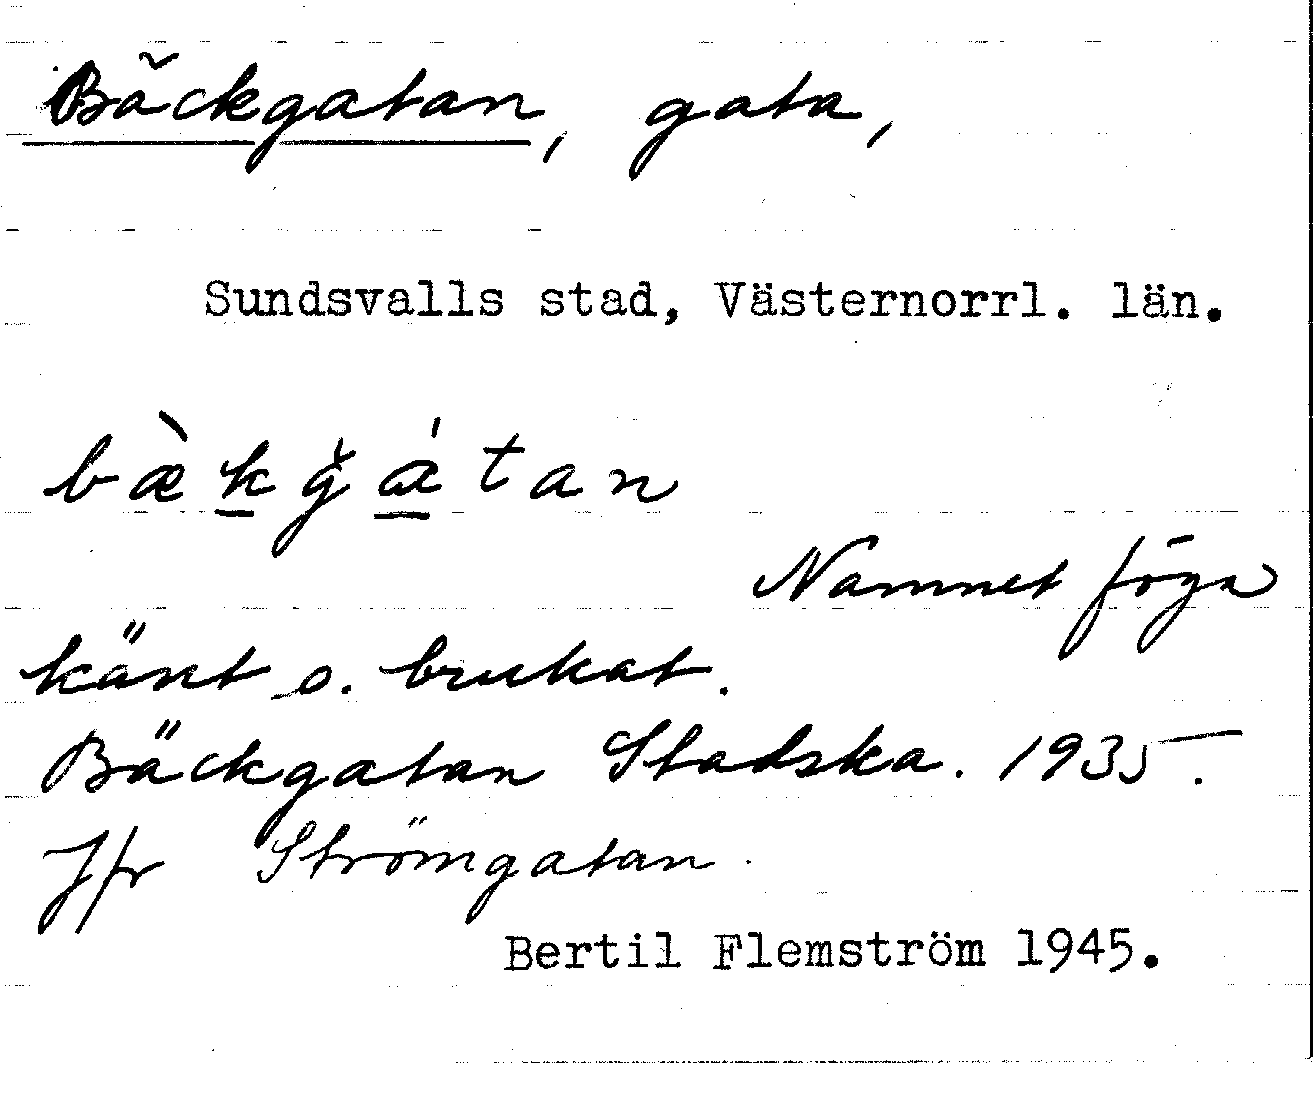 Bäckgatan, gata,
Sundsvalls stad, Västernorrl. län.
bæ̀kğátan
Namnet föga
känt o. brukat.
Bäckgatan Stadska. 1935.
Jfr Strömgatan.
Bertil Flemström 1945.